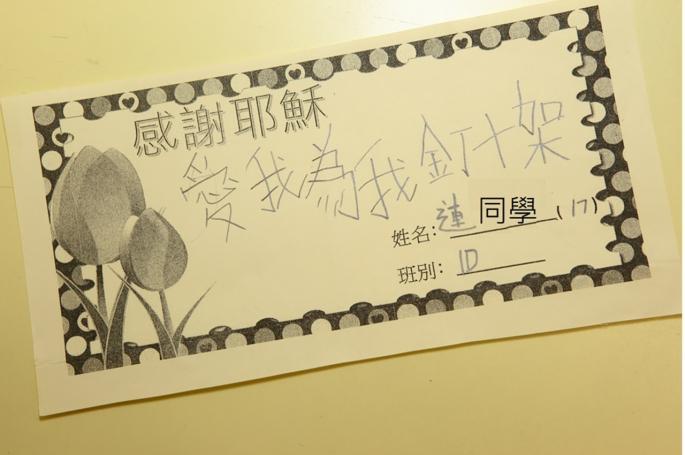 感謝耶穌
愛我為我釘十架
姓名：連同學 (17)
班別：1D